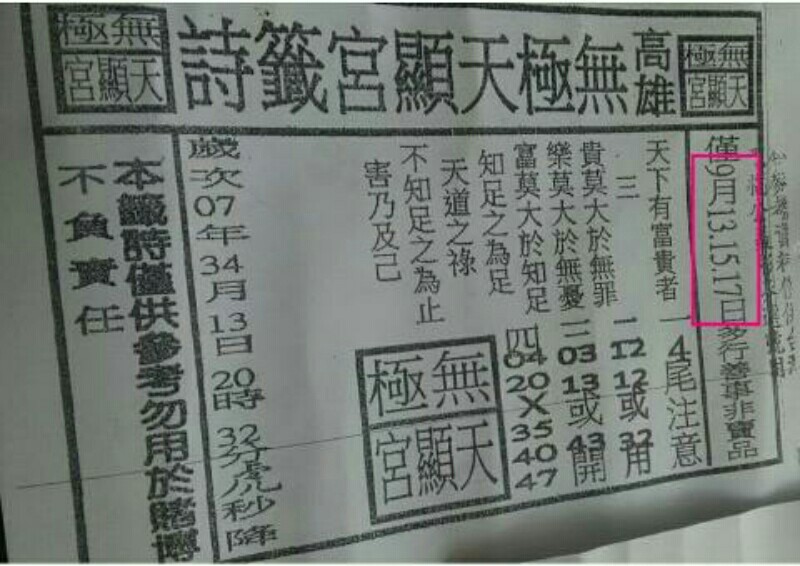 無極
天顯宮
高雄 無極天顯宮籤詩
無極
天顯宮
僅9月13.15.17日多行善事非賣品
天下有富貴者 一 4尾注意
三 二 12 12或32 用
貴莫大於無罪
樂莫大於無憂 三 03 13或43 開
富莫大於知足 四 04 20 X 35 40 47
知足之為足
天道之祿
不知足之為止
害乃及己
無極
天顯宮
歲次07年34月13日20時32分虎秒降
本籤詩僅供參考勿用於賭博
不負責任